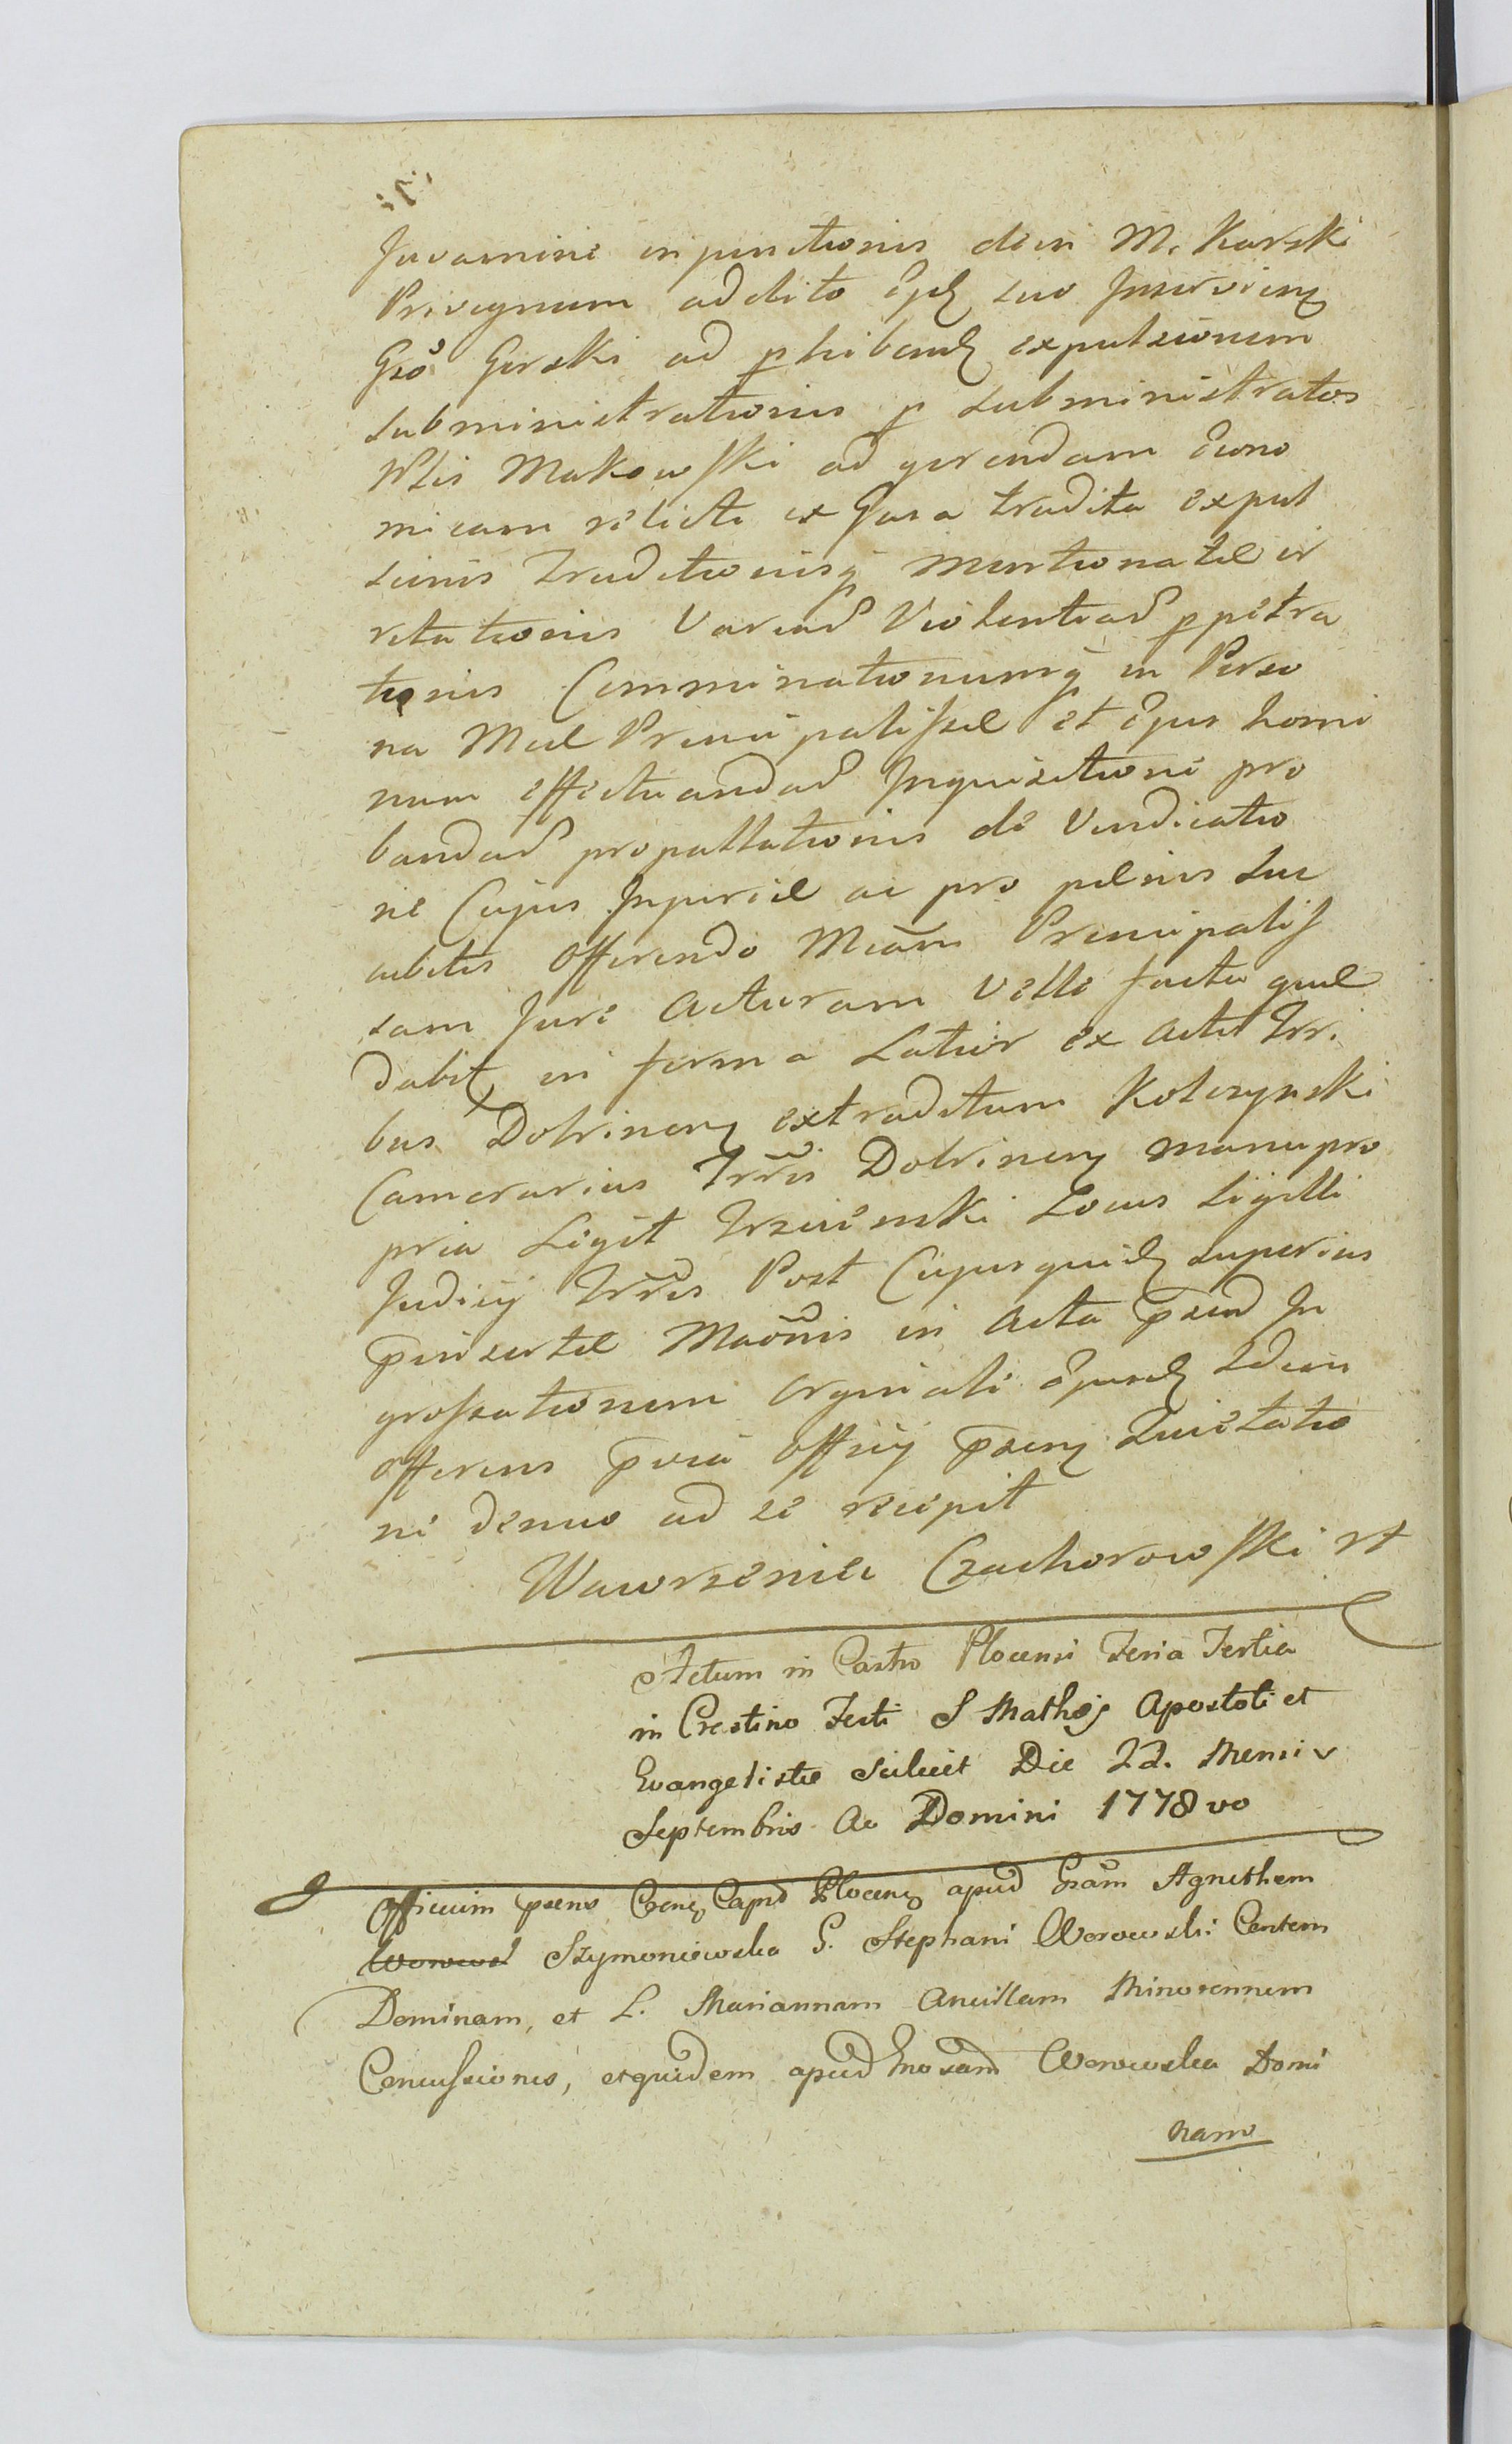 Juvamine injunctionis deni M. Karski
Privignum addito sui
Gso Gorski ad expulsionem
subministrationis p subministratos
Makowski ad gerendam Econo
micam relicti ex Jura tradita expul
sionis Traditionisq mentionatae ir
ritationis Variar Violentiar ppetra
tionis Comminationumq in Perso
na Meae Principalissae et Ejus homi
num effectuandar Inquisitione pro
bandar propallationis de Vindicatio
ne Cujus Injuriae ac pro paenis
offerendo Meam Principalis
sam Jure Acturam Velle facta quae
dabit in forma Latior ex Actis Trri
bus Dobrinen extraditum Kolczynski
Camerarius Trris Dobrinen manu pro
pria Legit Trzcienski Locus Sigilli
Judicij Trris Post Cujusquid superius
pinsertae Maonis in Acta psend In
grossationem orginali Idem
offerens Officij psen Quietatio
ne denuo ad se recipit
Wawrzeniec Czachorowski
Actum in Castro Plocensi Feria Tertia
in Crastino Festi S Mathei Apostoli et
Evangelistae scilicet Die 22. Mensis
Septembris Ao Domini 1778vo
Officium psens Plocen apud Gsam Agnethem
Worowsk Szymoniowska G. Stephani Worowski Contem
Dominam, et L. Mariannam Ancillam Minorennem
Concussiones, etquidem apud Gnosam Worowska Domi
nam